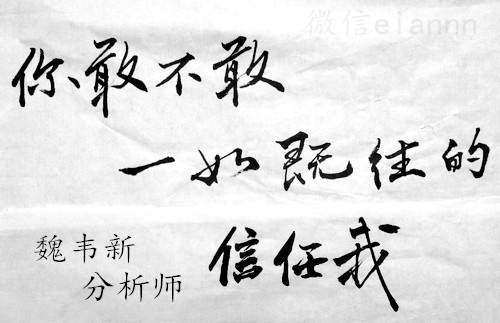 微信eiannn
你敢不敢
一如既往的
信任我
魏韦新
分析师